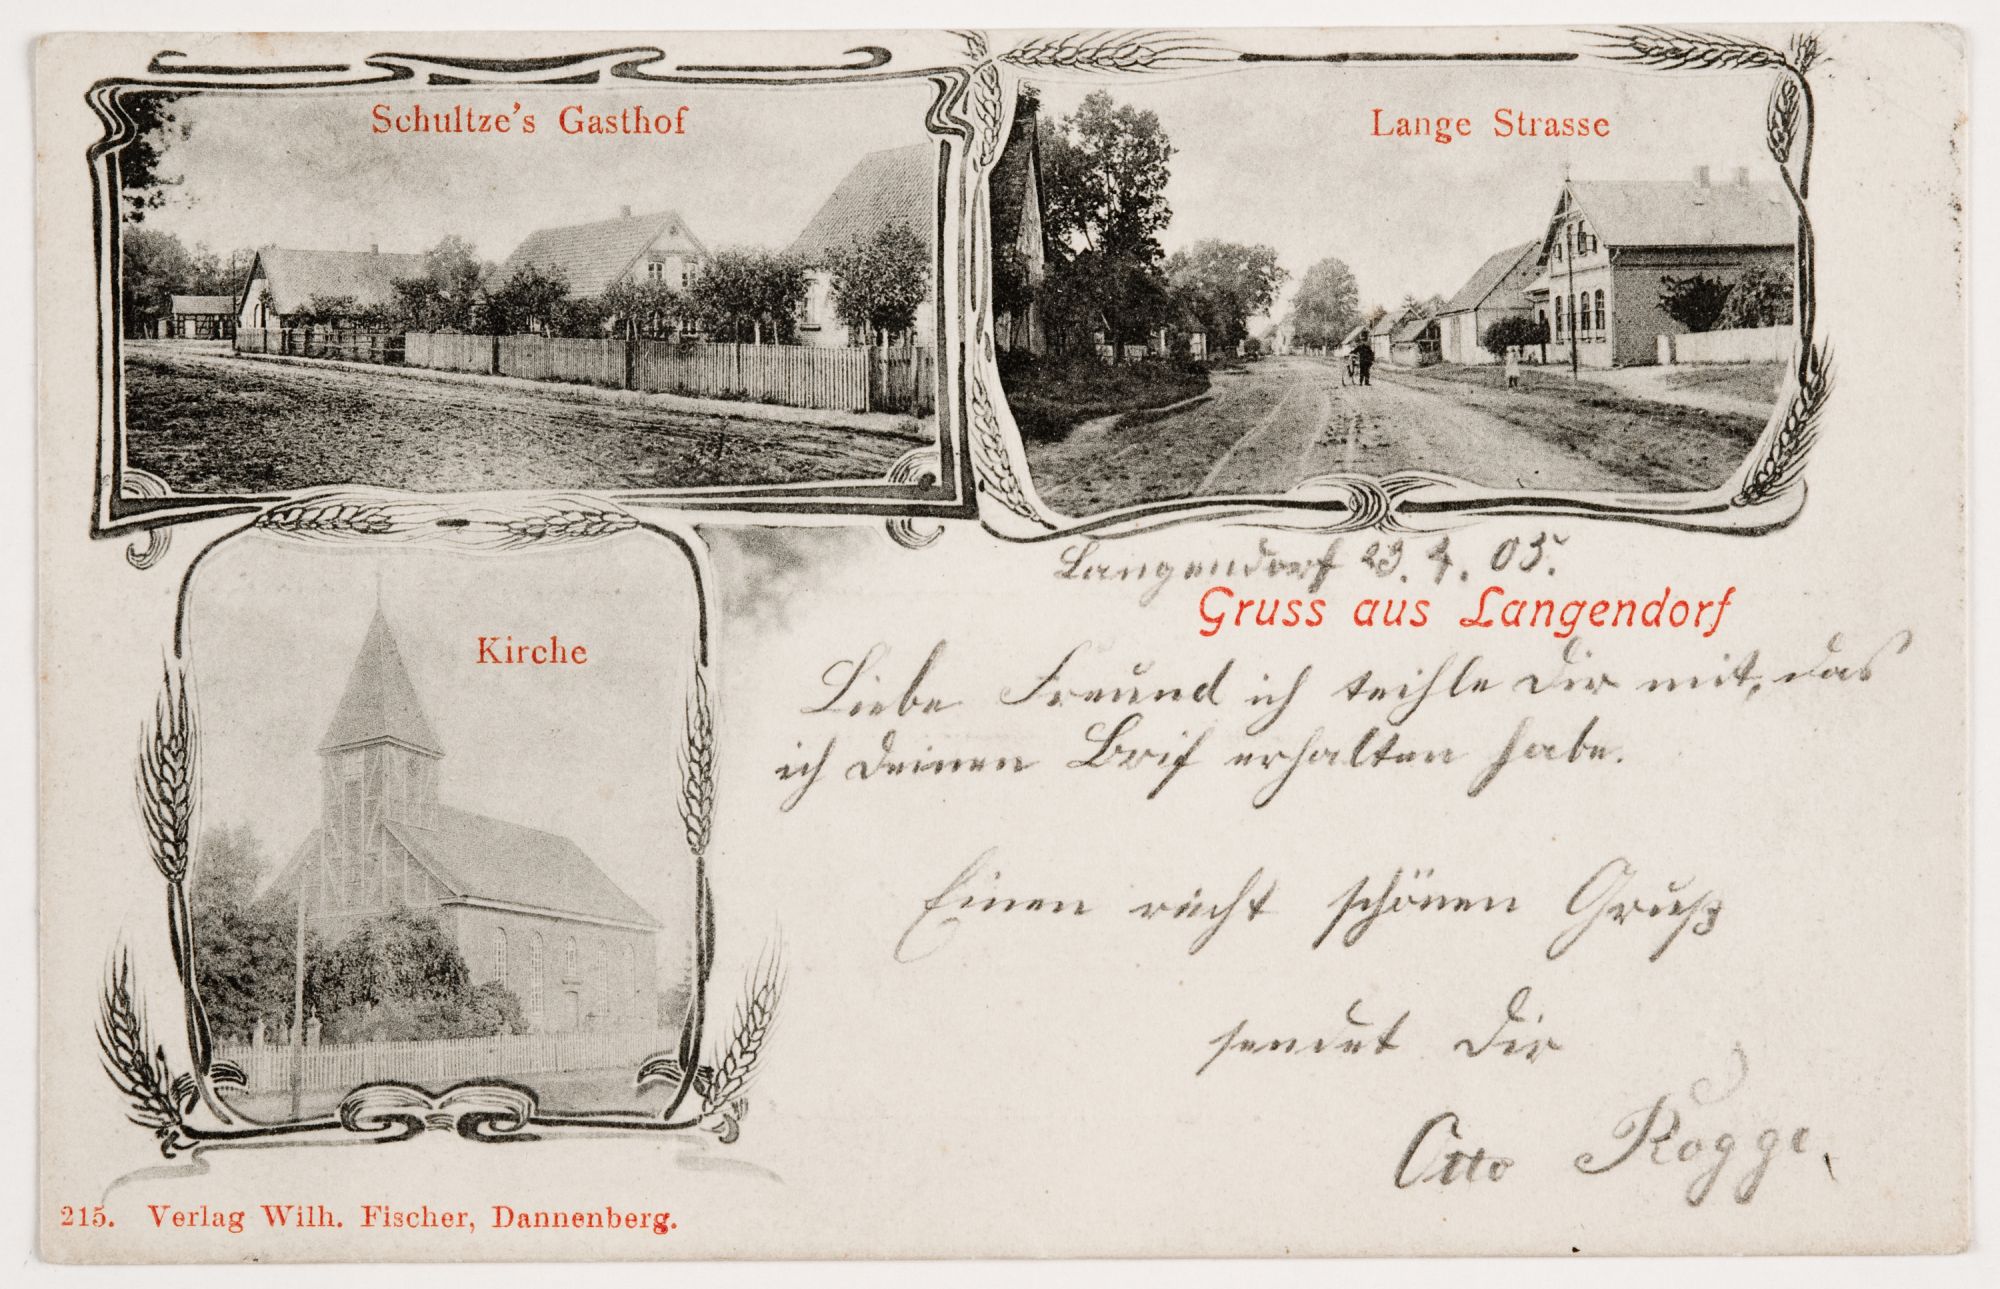 Schultze's Gasthof
Lange Strasse
Kirche
Langendorf 23. 4. 05.
Gruss aus Langendorf
Liebe Freund ich teihle Dir mit, das
ich deinen Brif erhalten habe.
Einen recht schönen Gruß
sendet Dir
Otto Rogge.
215. Verlag Wilh. Fischer, Dannenberg.